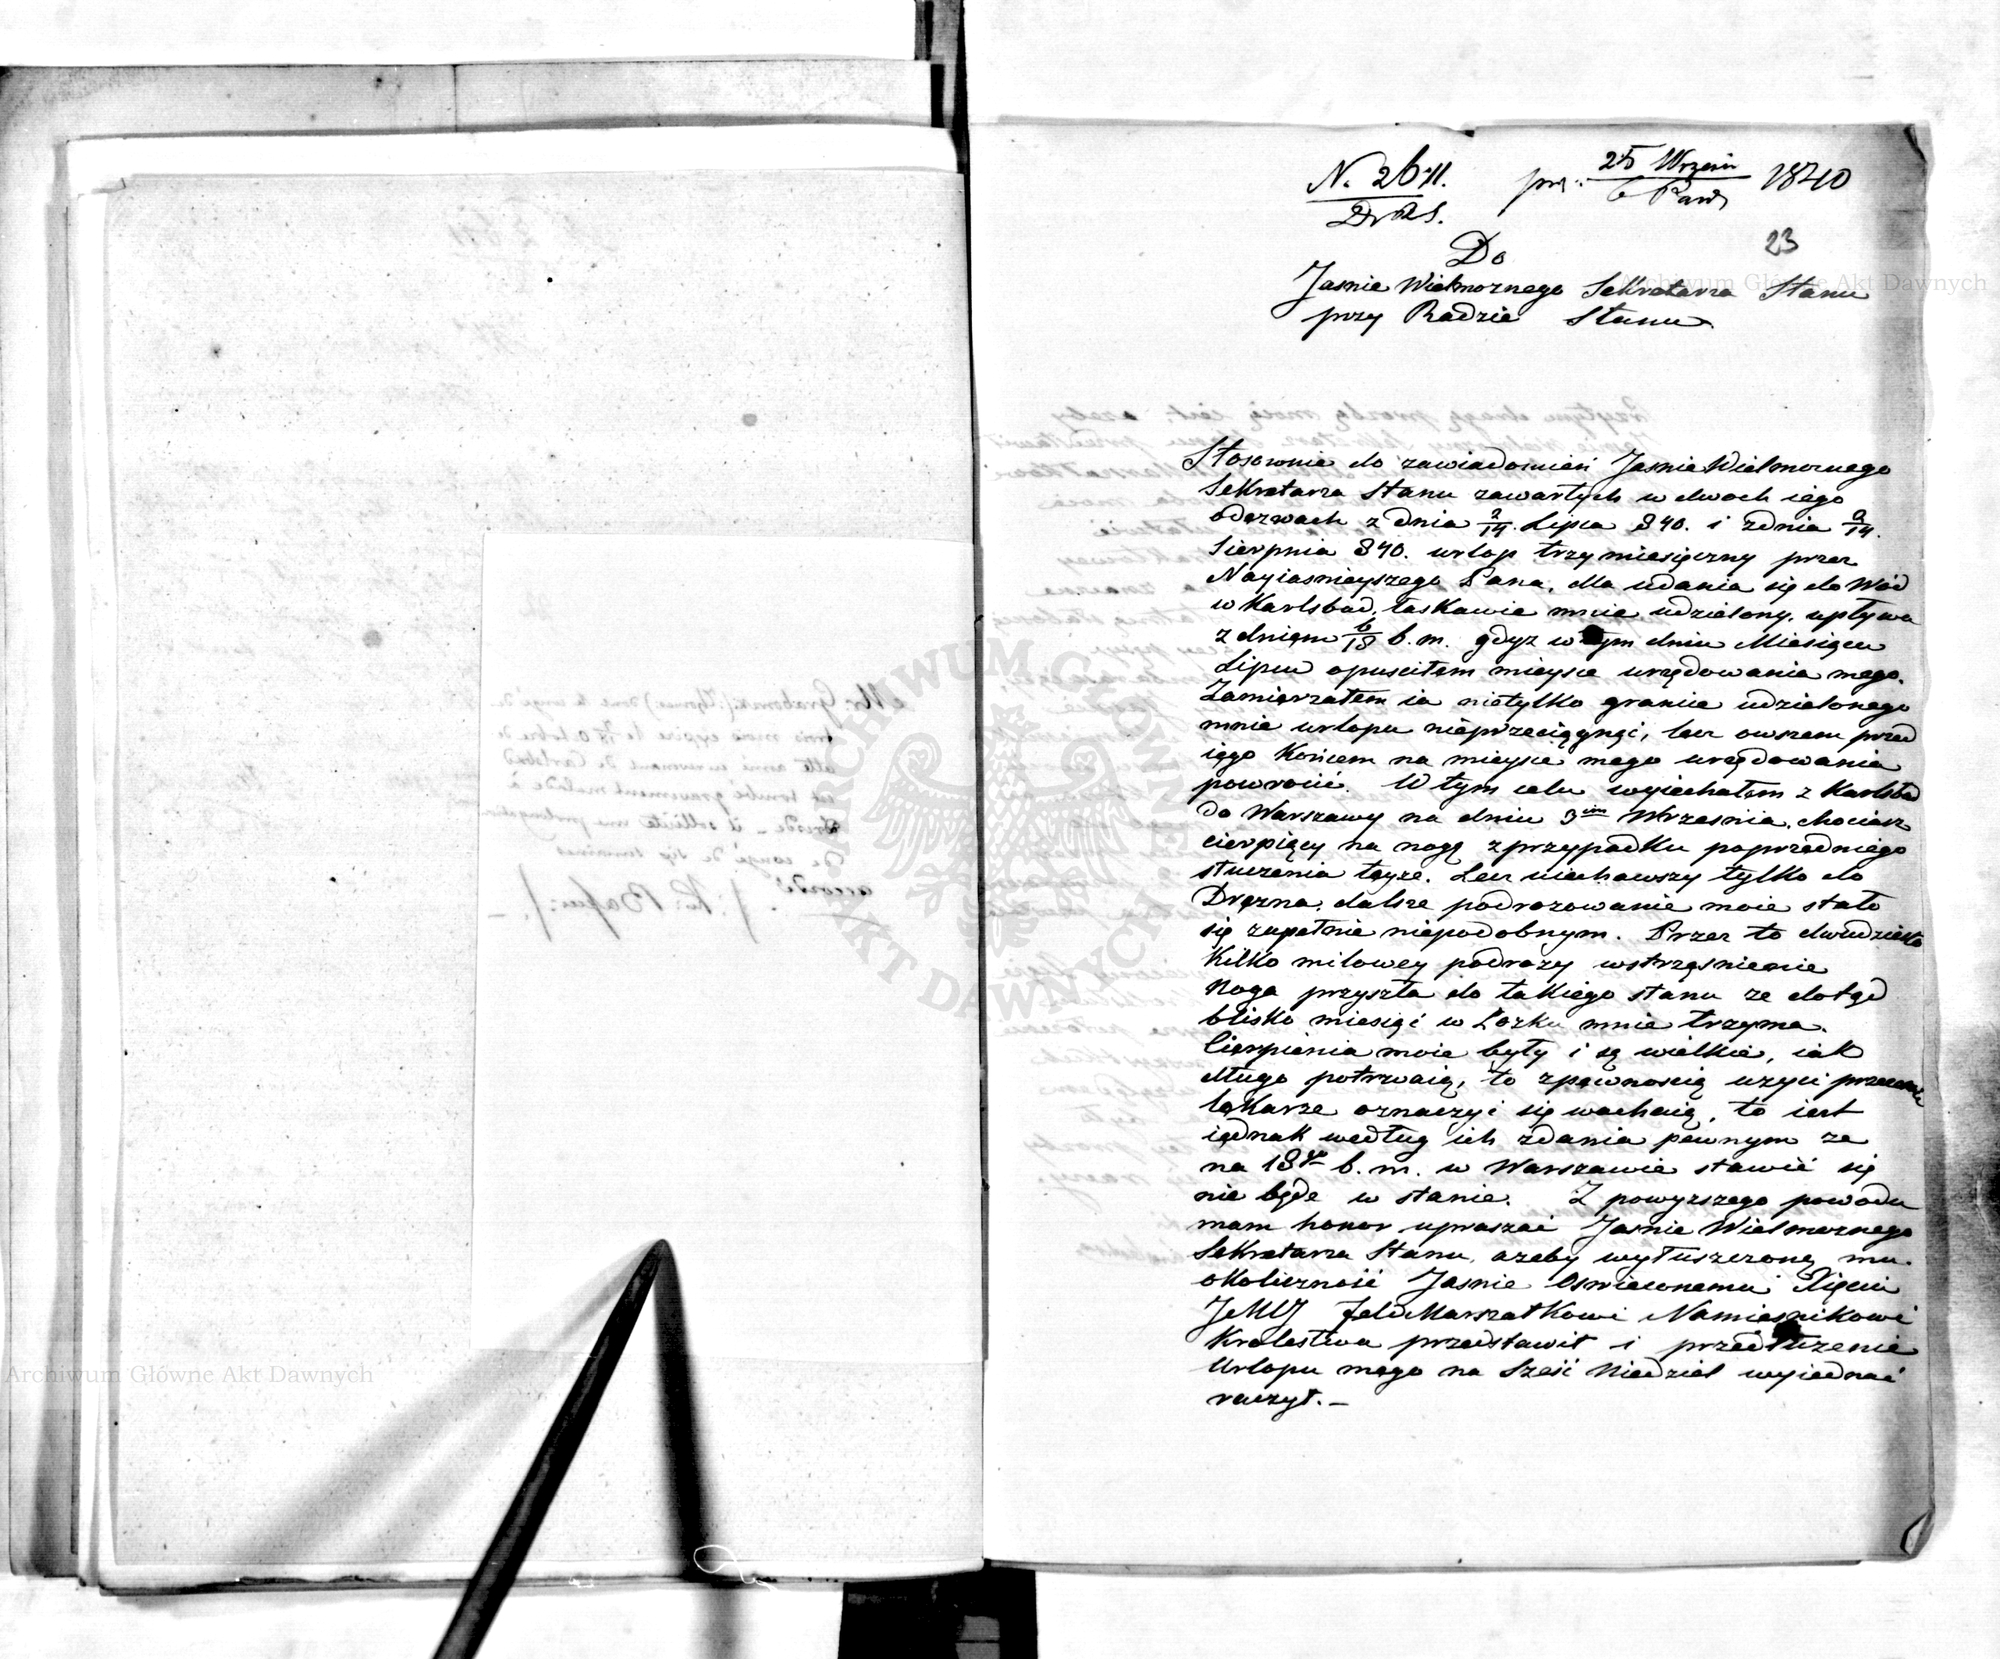 N. 2611. pr: 25 Wrześn 1840
Dr R S. 6 Paźd
23
Do
Jaśnie Wielmożnego Sekretarza Stanu
przy Radzie Stanu
Stosownie do zawiadomień Jaśnie Wielmożnego
Sekretarza Stanu zawartych w dwoch iego
odezwach z dnia 2/14. Lipca 840. i z dnia 2/14.
Sierpnia 840. urlop trzymiesięczny przez
Nayiasnieyszego Pana, dla udania się do Wód
w Karlsbad, łaskawie mnie udzielony, upływa
z dniem 6/18 b. m. gdyz w tym dniu Miesiąca
Lipca opusciłem mieysce urzędowania mego.
Zamierzałem ia nietylko granic udzielonego
mnie urlopu nieprzeciągnąć, lecz owszem przed
iego Końcem na mieysce mego urzędowania
powrocić. W tym celu wyiechałem z Karlsbad
do Warszawy na dniu 3im Wrzesnia, chociasz
cierpiący na nogę z przypadku poprzedniego
stuczenia teyze. Lecz uiechawszy tylko do
Drezna, dalsze podrozowanie moie stało
się zupełnie niepodobnym. Przez to dwudziesto
Kilko milowey podrozy wstrząsnienie
Noga przyszła do takiego stanu ze dotąd
blisko miesiąc w Łozku mnie trzyma.
Cierpienia moie były i są wielkie, iak
długo potrwaią, to z pewnoscią uzyci przezemnie
lekarze oznaczyć się wachaią, to iest
iednak według ich zdania pewnym ze
na 18go b. m. w Warszawie stawić się
nie będe w stanie. Z powyzszego powodu
mam honor upraszać Jaśnie Wielmoznego
Sekretarza Stanu, azeby wyłuszczoną mu.
okoliczność Jaśnie Oswieconemu Xięciu
JEMCJ FeldMarszałkowi Namiesnikowi
Krolestwa przedstawił i przedłuzenie
Urlopu mego na Sześć Niedziel wyiednać
raczył. —
Archiwum Główne Akt Dawnych
Archiwum Główne Akt Dawnych
ARCHIWUM GŁÓWNE AKT DAWNYCH